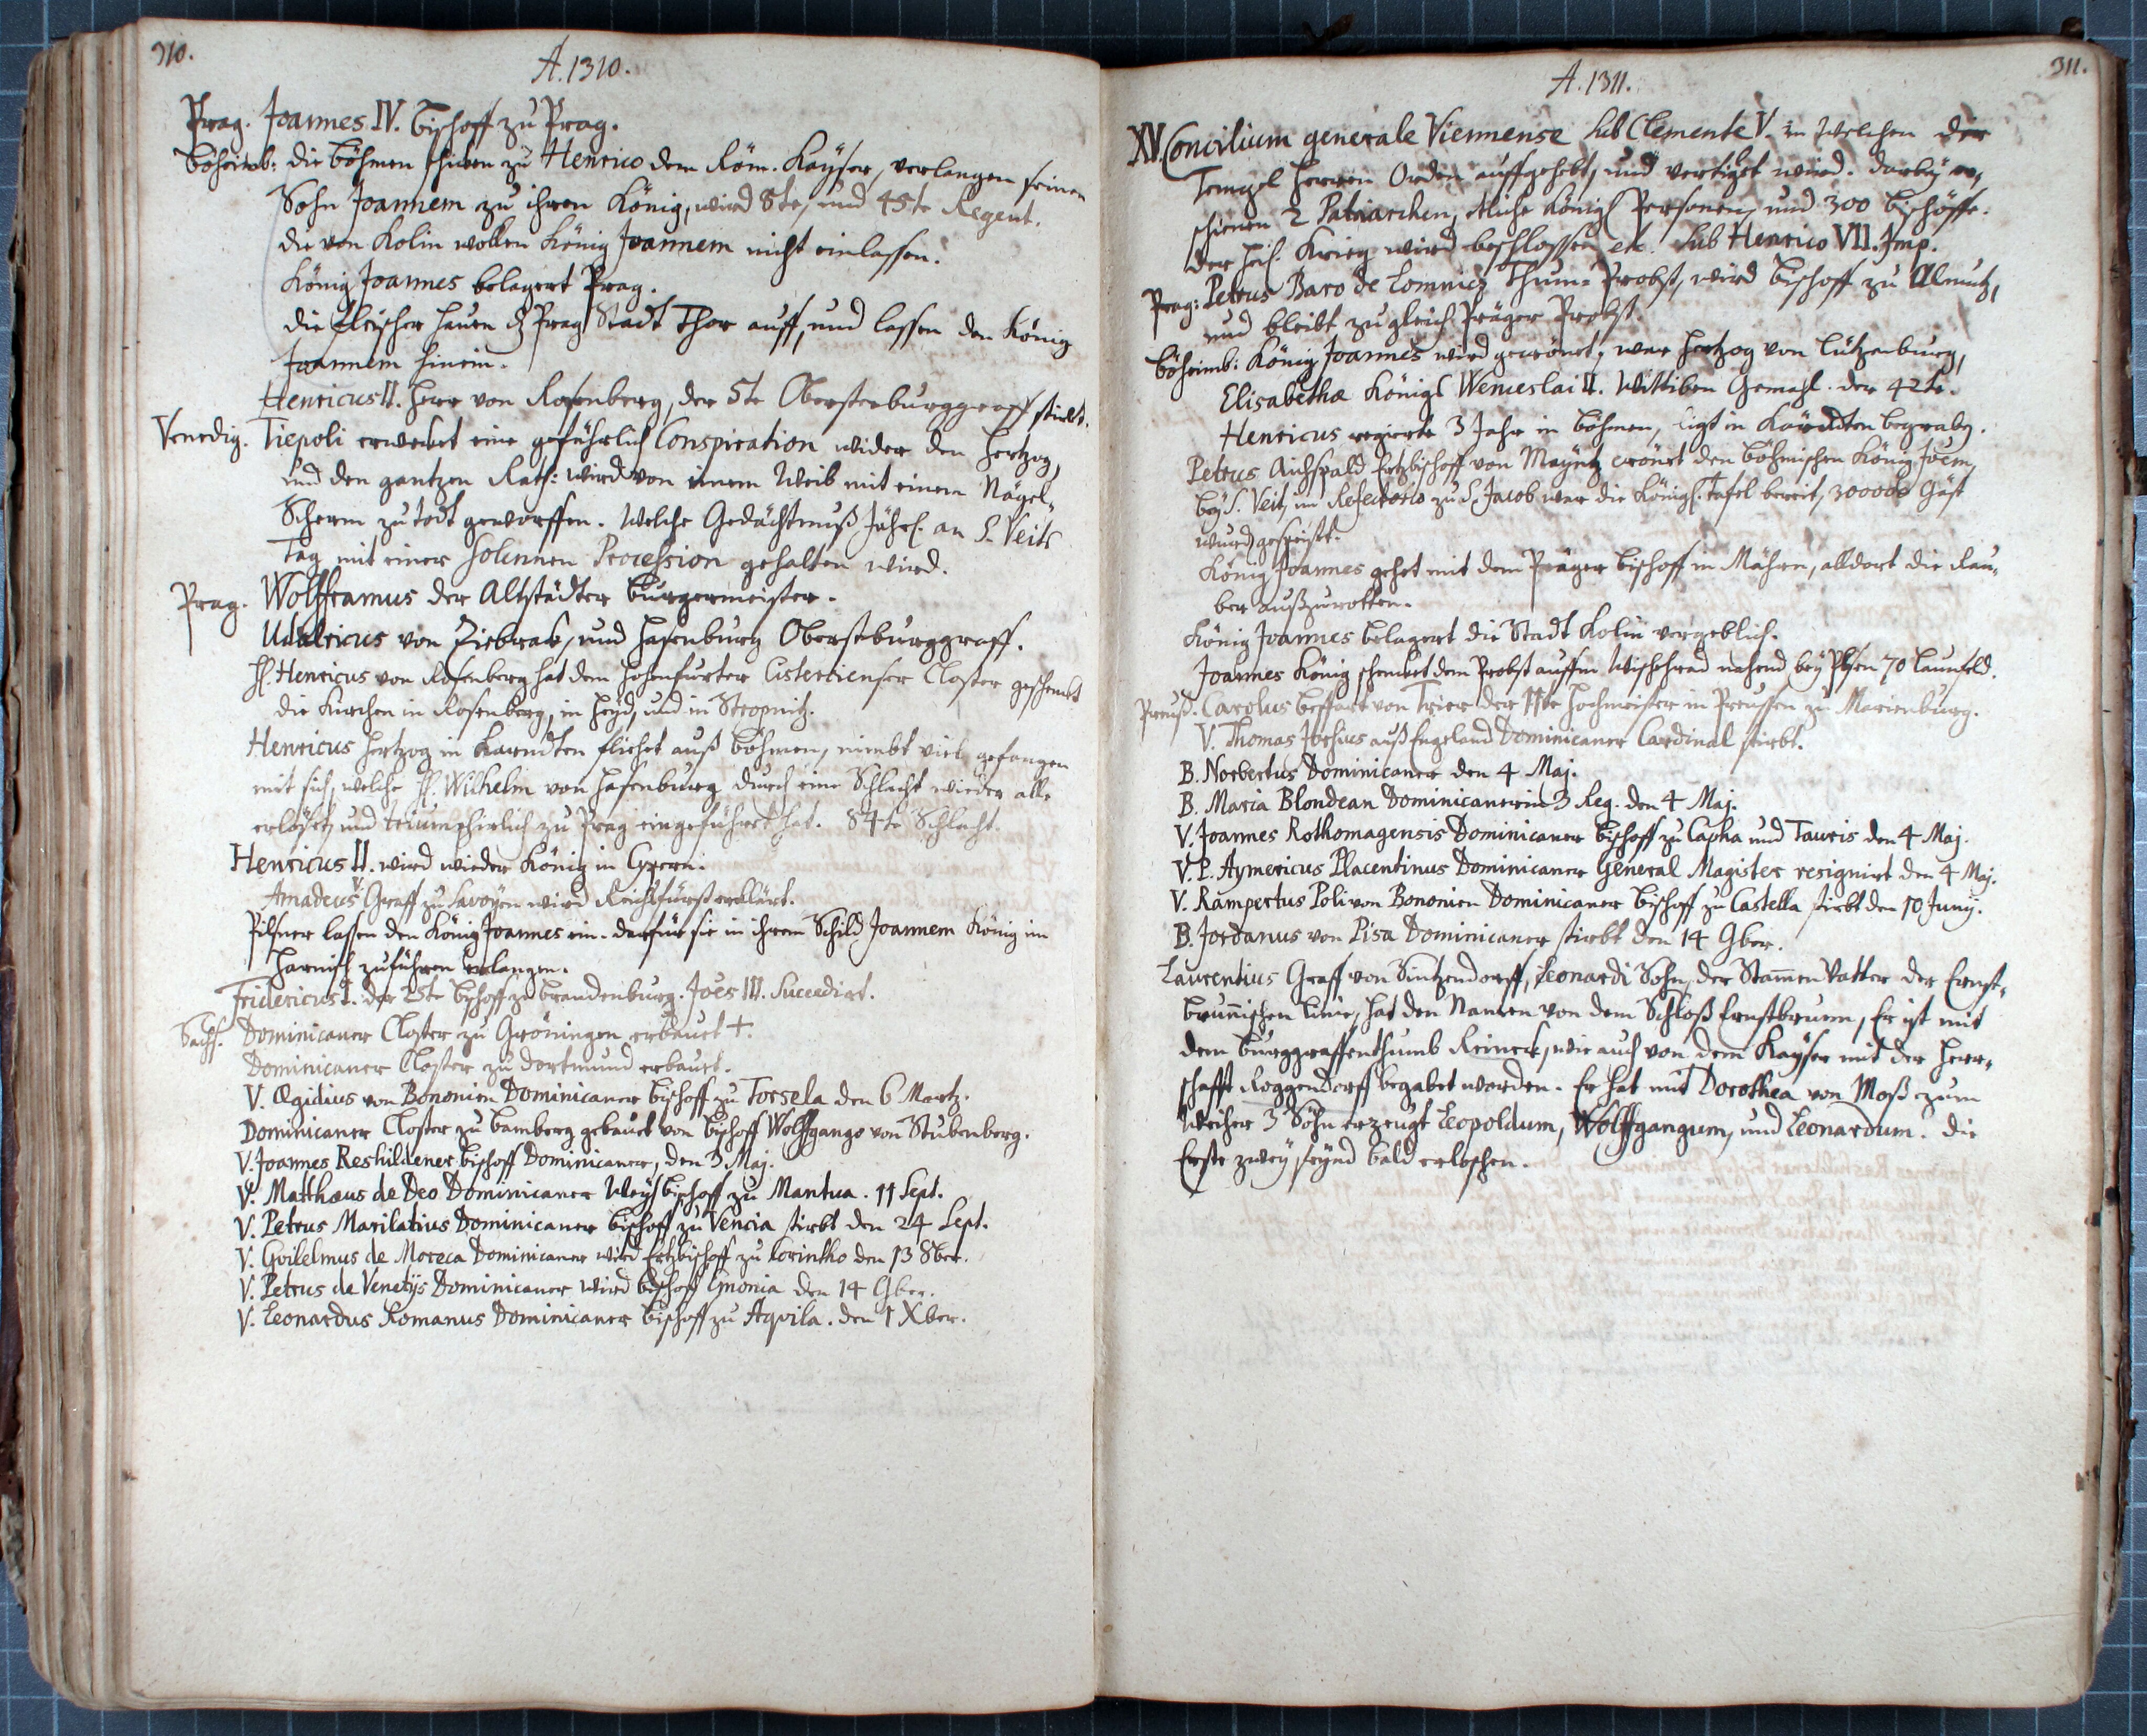 310.
A. 1310.
Prag. Joannes IV. Bischoff zu Prag.
Böheimb: die Böhmen schicken zu Henrico dem Röm. Kayser, verlangen seinen
Sohn Joannem zu ihren König, wird 8te, und 45te Regent.
die von Kolin wollen König Joannem nicht einlassen.
König Joannes belagert Prag.
die Fleischer hauen Prag Stadt Thor auff, und lassen den König
Joannem hinein.
Henricus II. Herr von Rosenberg, der 5te Obersterburggraff stirbt.
Venedig. Tiepoli erwecket eine gefährlich Conspiration wider den Hertzog,
und den gantzen Rath: wird von einem Weib mit einem Nägel-
Scherm zu todt geworffen. Welche Gedächtnuß Jährl. an S. Veits
Tag mit einer solennen Procession gehalten wird.
Prag. Wolfframus der Altstädter Burgermeister.
Udalricus von Ziebrak, und Hasenburg Obersteburggraff.
H. Henricus von Rosenberg hat dem Hohenfurter Cistercienser Closter geschenckt
die Kirchen in Rosenberg, in Heyd, und in Stropnitz.
Henricus Hertzog in Karndten flichet auß Böhmen, nimbt viel gefangen
mit sich, welche H. Wilhelm von Hasenburg durch eine Schlacht wieder alle
erlöset, und triumphirlich zu Prag eingeführet hat. 84te Schlacht.
Henricus II. wird wieder König in Cypern.
Amadeus V. Graff zu Savoyen wird Reichsfürst erklärt.
Pilsner lassen den König Joannes ein. darfür sie in ihrem Schild Joannem König im
Harnisch zuführen erlangen.
Fridericus I. der 25te Bischoff zu Brandenburg. Joes III. Succedirt.
Sachs. Dominicaner Closter zu Gröningen erbauet +.
Dominicaner Closter zu Dortmund erbauet.
V. Ægidius von Bononien Dominicaner Bischoff zu Torsela den 6 Martz.
Dominicaner Closter zu Bamberg gebauet von Bischoff Wolffgango von Stubenberg.
V. Joannes Reshildener Bischoff Dominicaner, den 3 Maj.
V. Matthæus de Deo Dominicaner Weyhbischoff zu Mantua. 11 Sept.
V. Petrus Marilatius Dominicaner Bischoff zu Vencia stirbt den 24 Sept.
V. Gvilelmus de Moreca Dominicaner wird Ertzbischoff zu Corintho den 13 8ber.
V. Petrus de Venetijs Dominicaner wird Bischoff Gnonia den 14 9ber.
V. Leonardus Romanus Dominicaner Bischoff zu Aqvila. den 1 Xber.
311.
A. 1311.
XV. Concilium generale Viennense sub Clemente V. in welchen der
Tempel Herren Orden auffgehebt, und vertilget wird. darbey er,
schienen 2 Patriarchen, etliche Königl Personen, und 300 Bischöffe.
der heil. Krieg wird beschlossen etc. sub Henrico VII. Imp.
Prag: Petrus Baro de Lomnicz Thum-Probst, wird Bischoff zu Olmutz,
und bleibt zugleich Präger Probst.
Böheimb: König Joannes wird gecrönet, war Hertzog von Lützenburg,
Elisabethæ Königs Wenceslai II. Wittiben Gemahl. der 42te.
Henricus regierte 3 Jahr in Böhmen, ligt in Kärndten begraben.
Petrus Aichspald Ertzbischoff von Mayntz crönet den Böhmischen König Joem,
bey S. Veit, im Refectorio zu S. Jacob war die Königl. Tafel bereit, 300000 Gäst
wurd gespeist.
König Joannes gehet mit dem Präger Bischoff in Mähren, alldort die Rau-
ber außzurotten.
König Joannes belagert die Stadt Kolin vergeblich.
Joannes König schencket dem Probst auffen Wischehrad nahend bey Pilsen 70
Preuß. Carolus Beffart von Trier der 11te Hochmeister in Preussen zu Marienburg.
V. Thomas Jorhius auß Engeland Dominicaner Cardinal stirbt.
B. Norbertus Dominicaner den 4 Maj.
B. Maria Blondean Dominicanerin 3 Reg. den 4 Maj.
V. Joannes Rothomagensis Dominicaner Bischoff zu Capha und Tauris den 4 Maj.
V. P. Aymericus Placentinus Dominicaner General Magister resignirt den 4 Maj.
V. Rampertus Poli von Bononien Dominicaner Bischoff zu Castella stirbt den 10 Junij.
B. Jordanus von Pisa Dominicaner stirbt den 14 9ber.
Laurentius Graff von Sintzendorff, Leonardi Sohn, der Stammen Vatter der Ernst-
brunnischen Linie, hat den Namen von dem Schloß Ernstbrunn, Er ist mit
dem Burggraffenthumb Reineck, wie auch von dem Kayser mit der Herr-
schafft Roggendorff begabet worden. Er hat mit Dorothea von Moß zum
Weiher 3 Söhn erzeugt Leopoldum, Wolffgangum, und Leonardum. die
Erste zwey seynd bald erloschen.